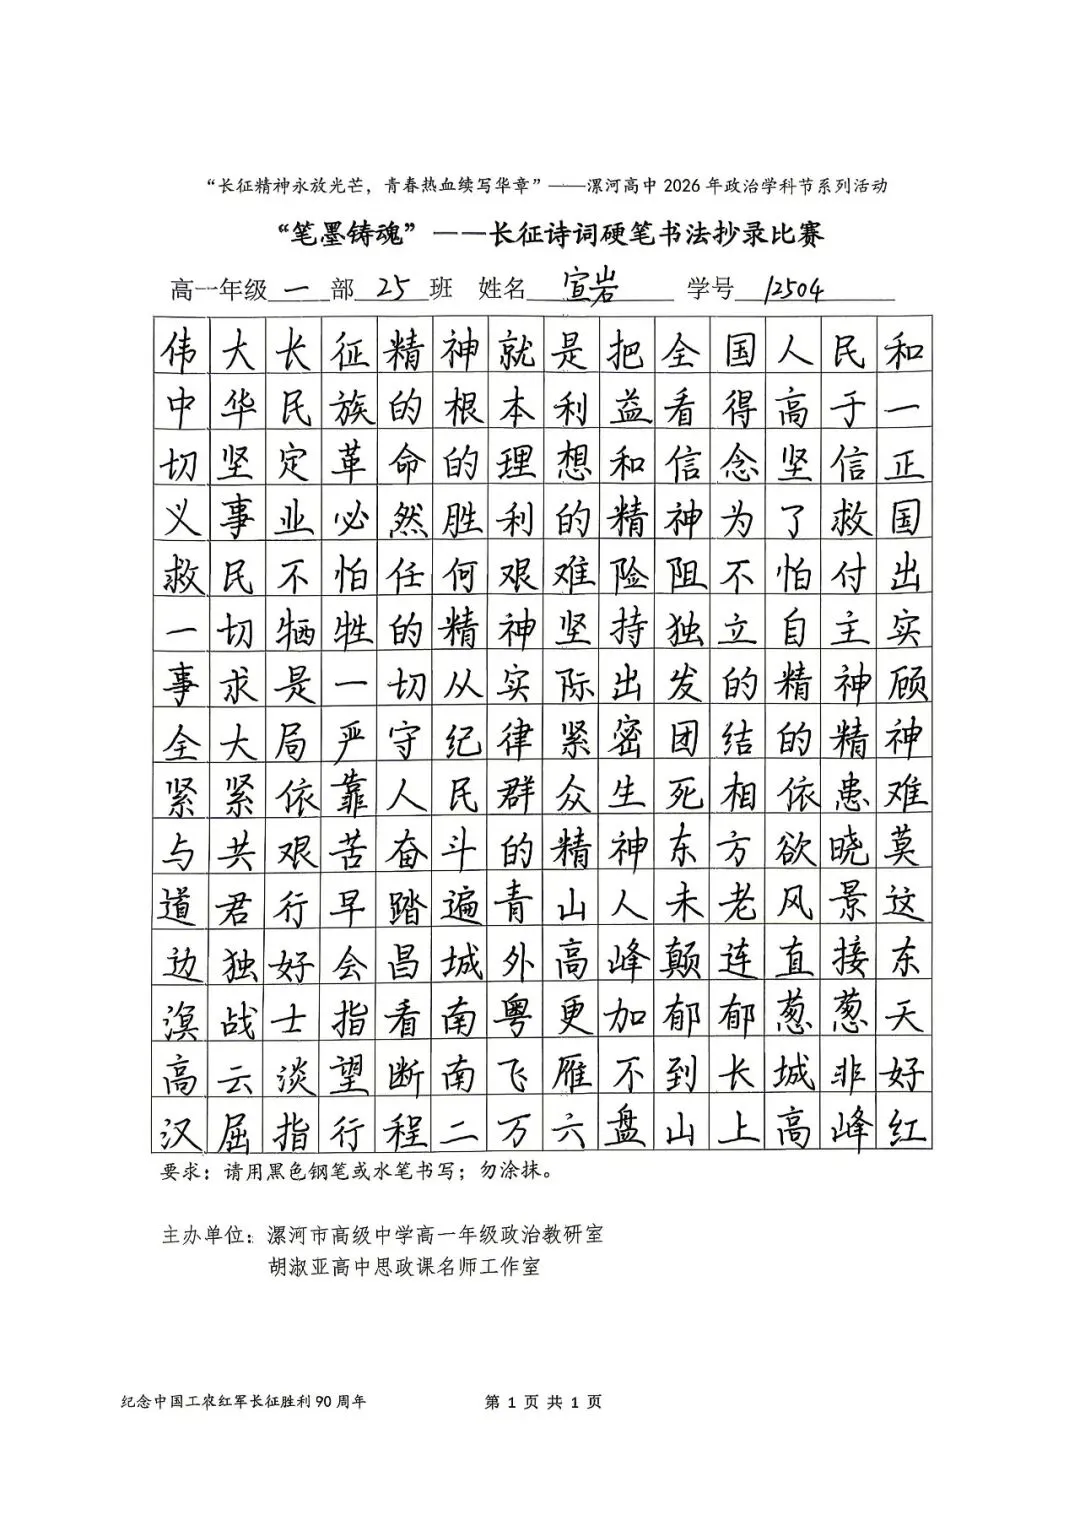 “长征精神永放光芒，青春热血续写华章”——漯河高中 2026 年政治学科节系列活动
“笔墨铸魂”——长征诗词硬笔书法抄录比赛
高一年级 一 部 25 班 姓名 宣岩 学号 12504
伟大长征精神就是把全国人民和
中华民族的根本利益看得高于一
切坚定革命的理想和信念坚信正
义事业必然胜利的精神为了救国
救民不怕任何艰难险阻不怕付出
一切牺牲的精神坚持独立自主实
事求是一切从实际出发的精神顾
全大局严守纪律紧密团结的精神
紧紧依靠人民群众生死相依患难
与共艰苦奋斗的精神东方欲晓莫
道君行早踏遍青山人未老风景这
边独好会昌城外高峰颠连直接东
溟战士指看南粤更加郁郁葱葱天
高云淡望断南飞雁不到长城非好
汉屈指行程二万六盘山上高峰红
要求：请用黑色钢笔或水笔书写；勿涂抹。
主办单位：漯河市高级中学高一年级政治教研室
胡淑亚高中思政课名师工作室
纪念中国工农红军长征胜利 90 周年 第 1 页 共 1 页